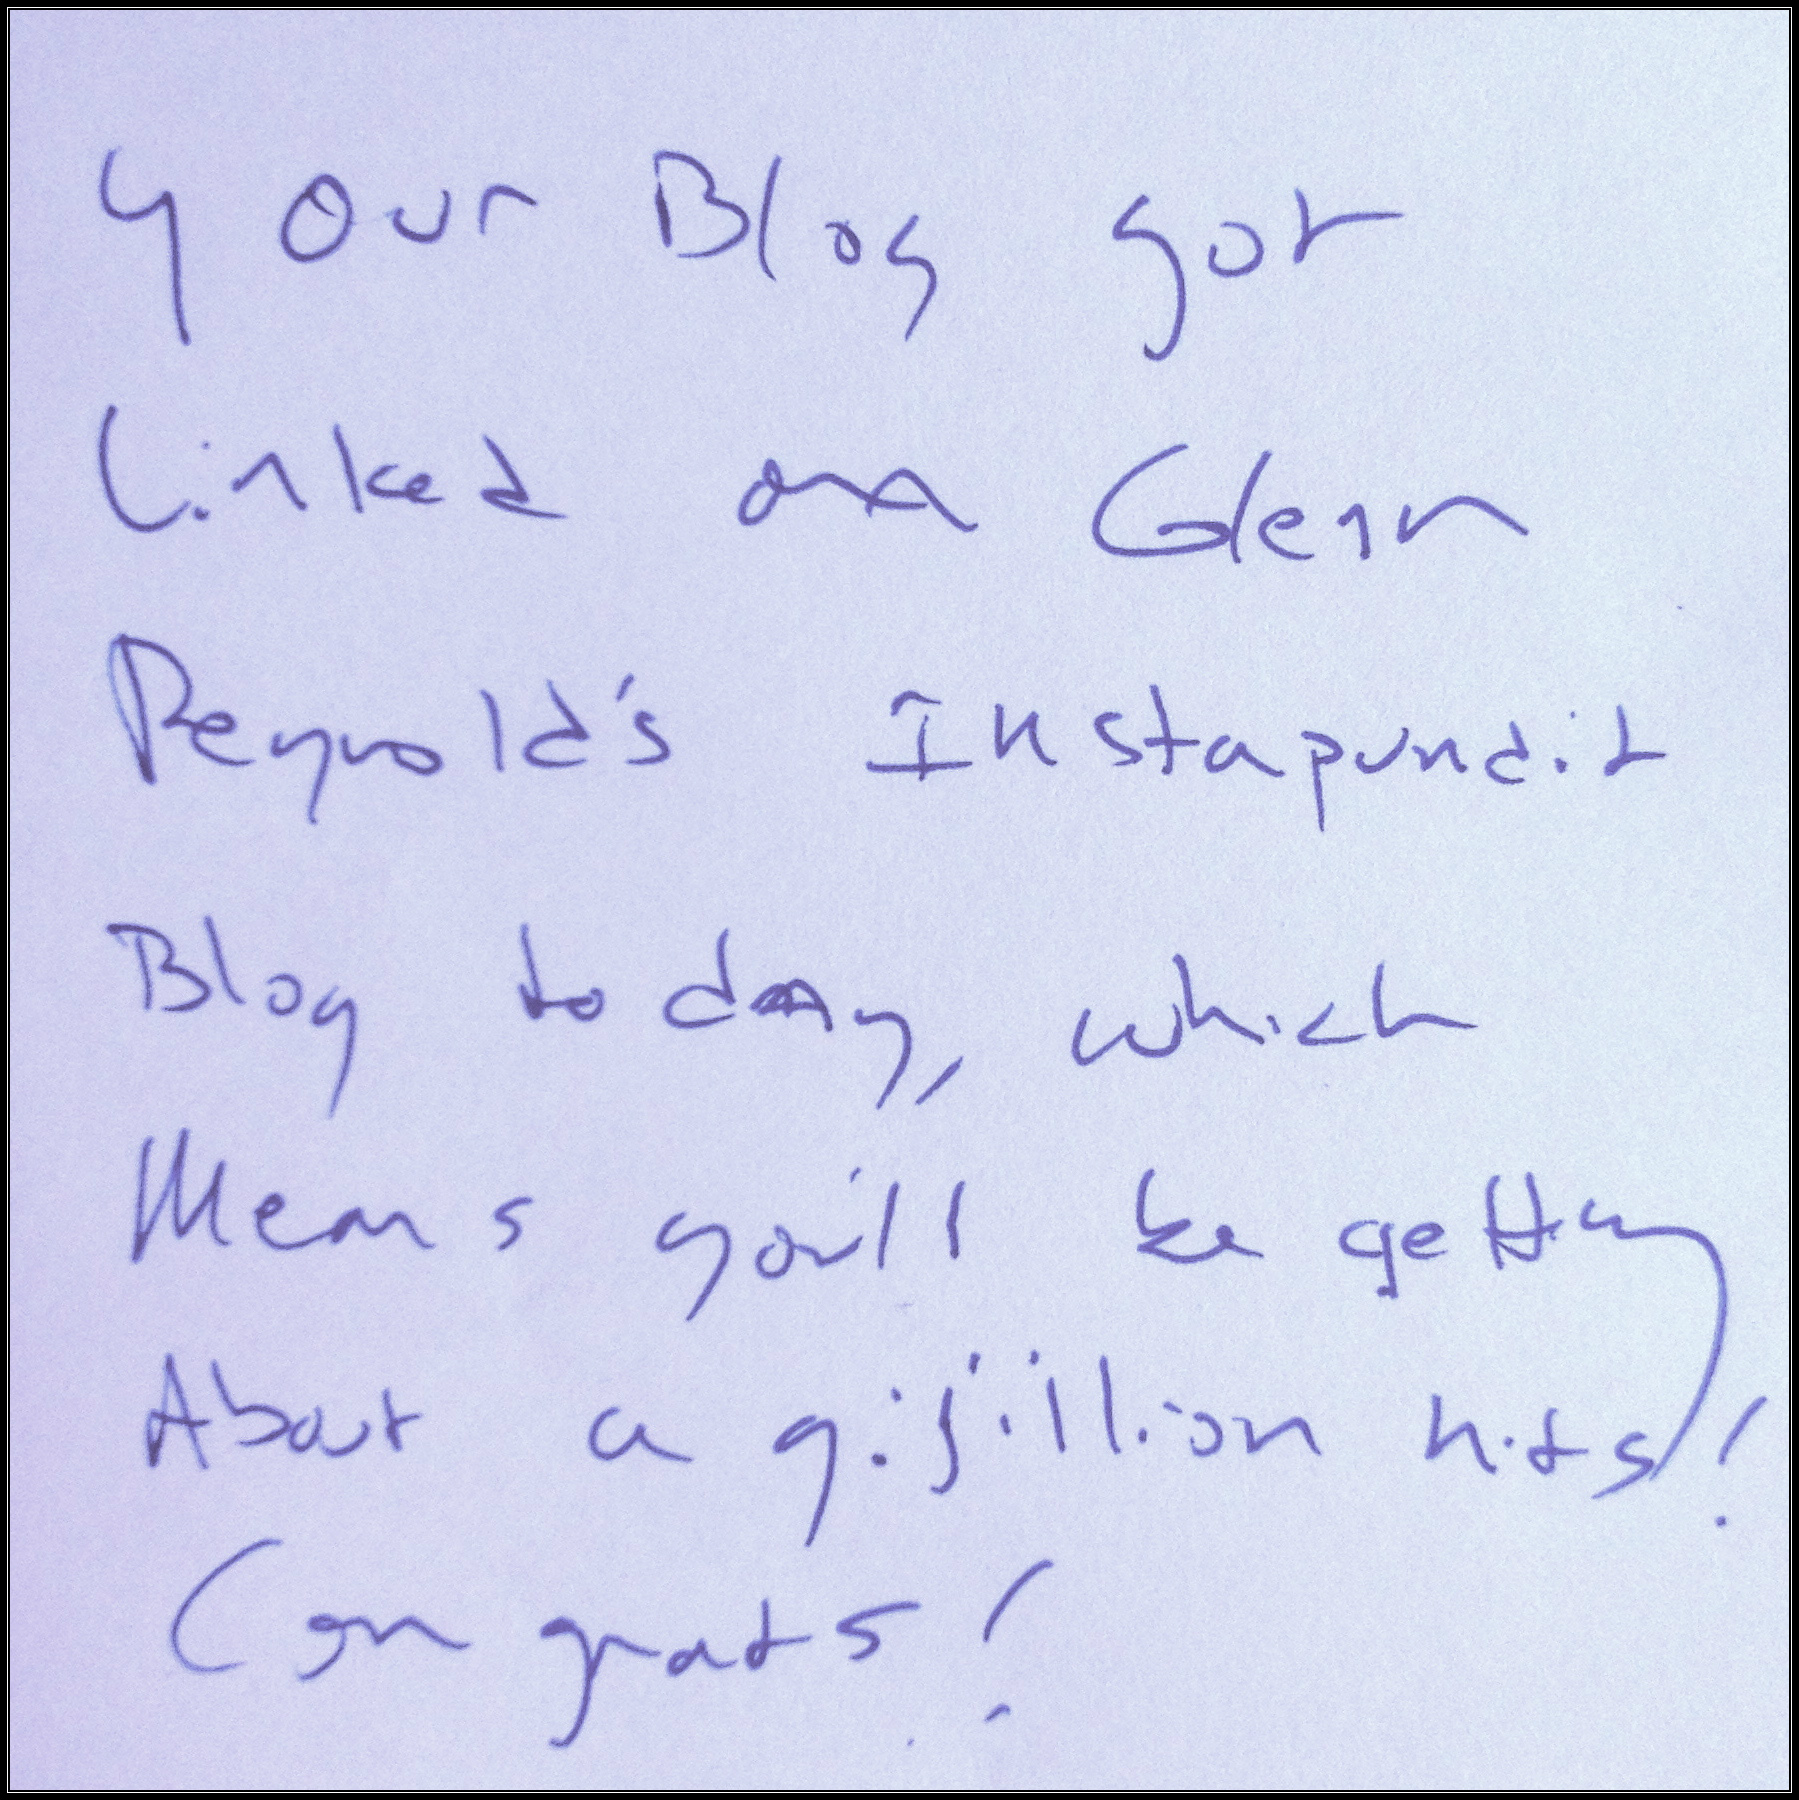 Your Blog got
Linked on Glenn
Reynold's Instapundit
Blog today, which
Means you'll be getting
About a gijillion hits!
Congrats!